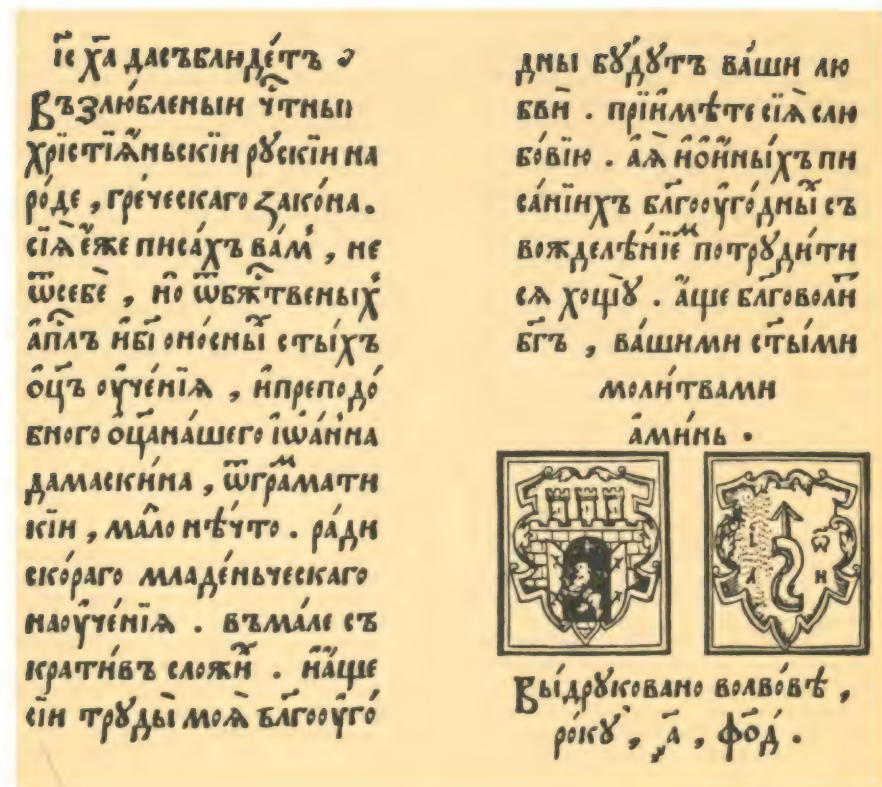 і҃с х҃а дасъблюде́тъ
Възлю́бленыи ч҃тныи
хрїстїа́ньскїи рꙋскїи на
ро́де , гре́ческаго зако́на.
сїѧ̀ є́же писа́хъ ва́м , не
ѿсебѐ , но ѿбж҃твеных
ап҃лъ и҆бг҃оносны ст҃ы́хъ
ѻц҃ъ ᲂу҆че́нїѧ , и҆преподо́
бного ѻц҃ана́шего і҆ѡа́нна
дамаски́на , ѿграма́ти
кїи , ма́ло нѣ́что . ра́ди
ско́раго младе́ньческаго
наᲂуче́нїѧ . въма́ле съ
крати́въ сложи́ . и҆а́ще
сїи трꙋды̀ моѧ̀ бл҃гоᲂуго́
дны бꙋ́дꙋтъ ва́ши лю
бвѝ . прїими́те сїѧ̀ слю
бо́вїю . а҆ѧ̀ и҆ои҆ны́хъ пи
са́нїихъ бл҃гоᲂуго́дны съ
вожделѣ́нїем потрꙋди́ти
сѧ хощꙋ̀ . а҆́ще бл҃говоли́т
бг҃ъ , ва́шими ст҃ы́ми
моли́твами
а҆ми́нь .
І Ѿ
А Н
Вы́дрꙋковано волво́вѣ ,
ро́кꙋ , ҂а҃ , фо҃д .